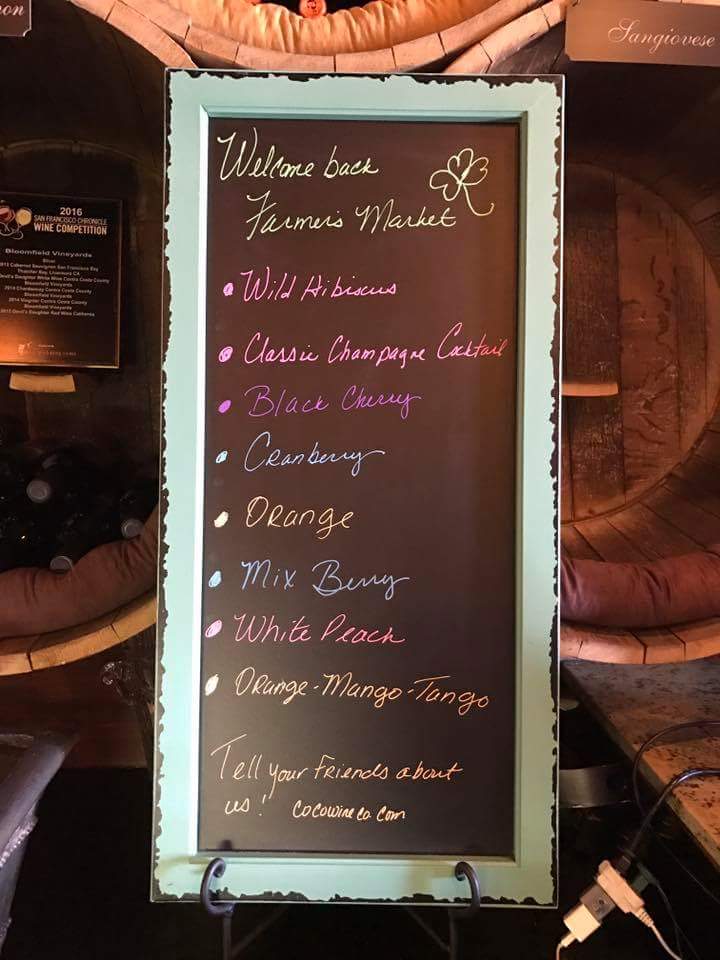 on
Sangiovese
2016
SAN FRANCISCO CHRONICLE
WINE COMPETITION
Bloomfield Vineyards
Silver
Welcome back
Farmers Market
• Wild Hibiscus
• Classic Champagne Cocktail
• Black Cherry
• Cranberry
• Orange
• Mix Berry
• White Peach
• Orange-Mango-Tango
Tell your Friends about
us! cocowineco.com